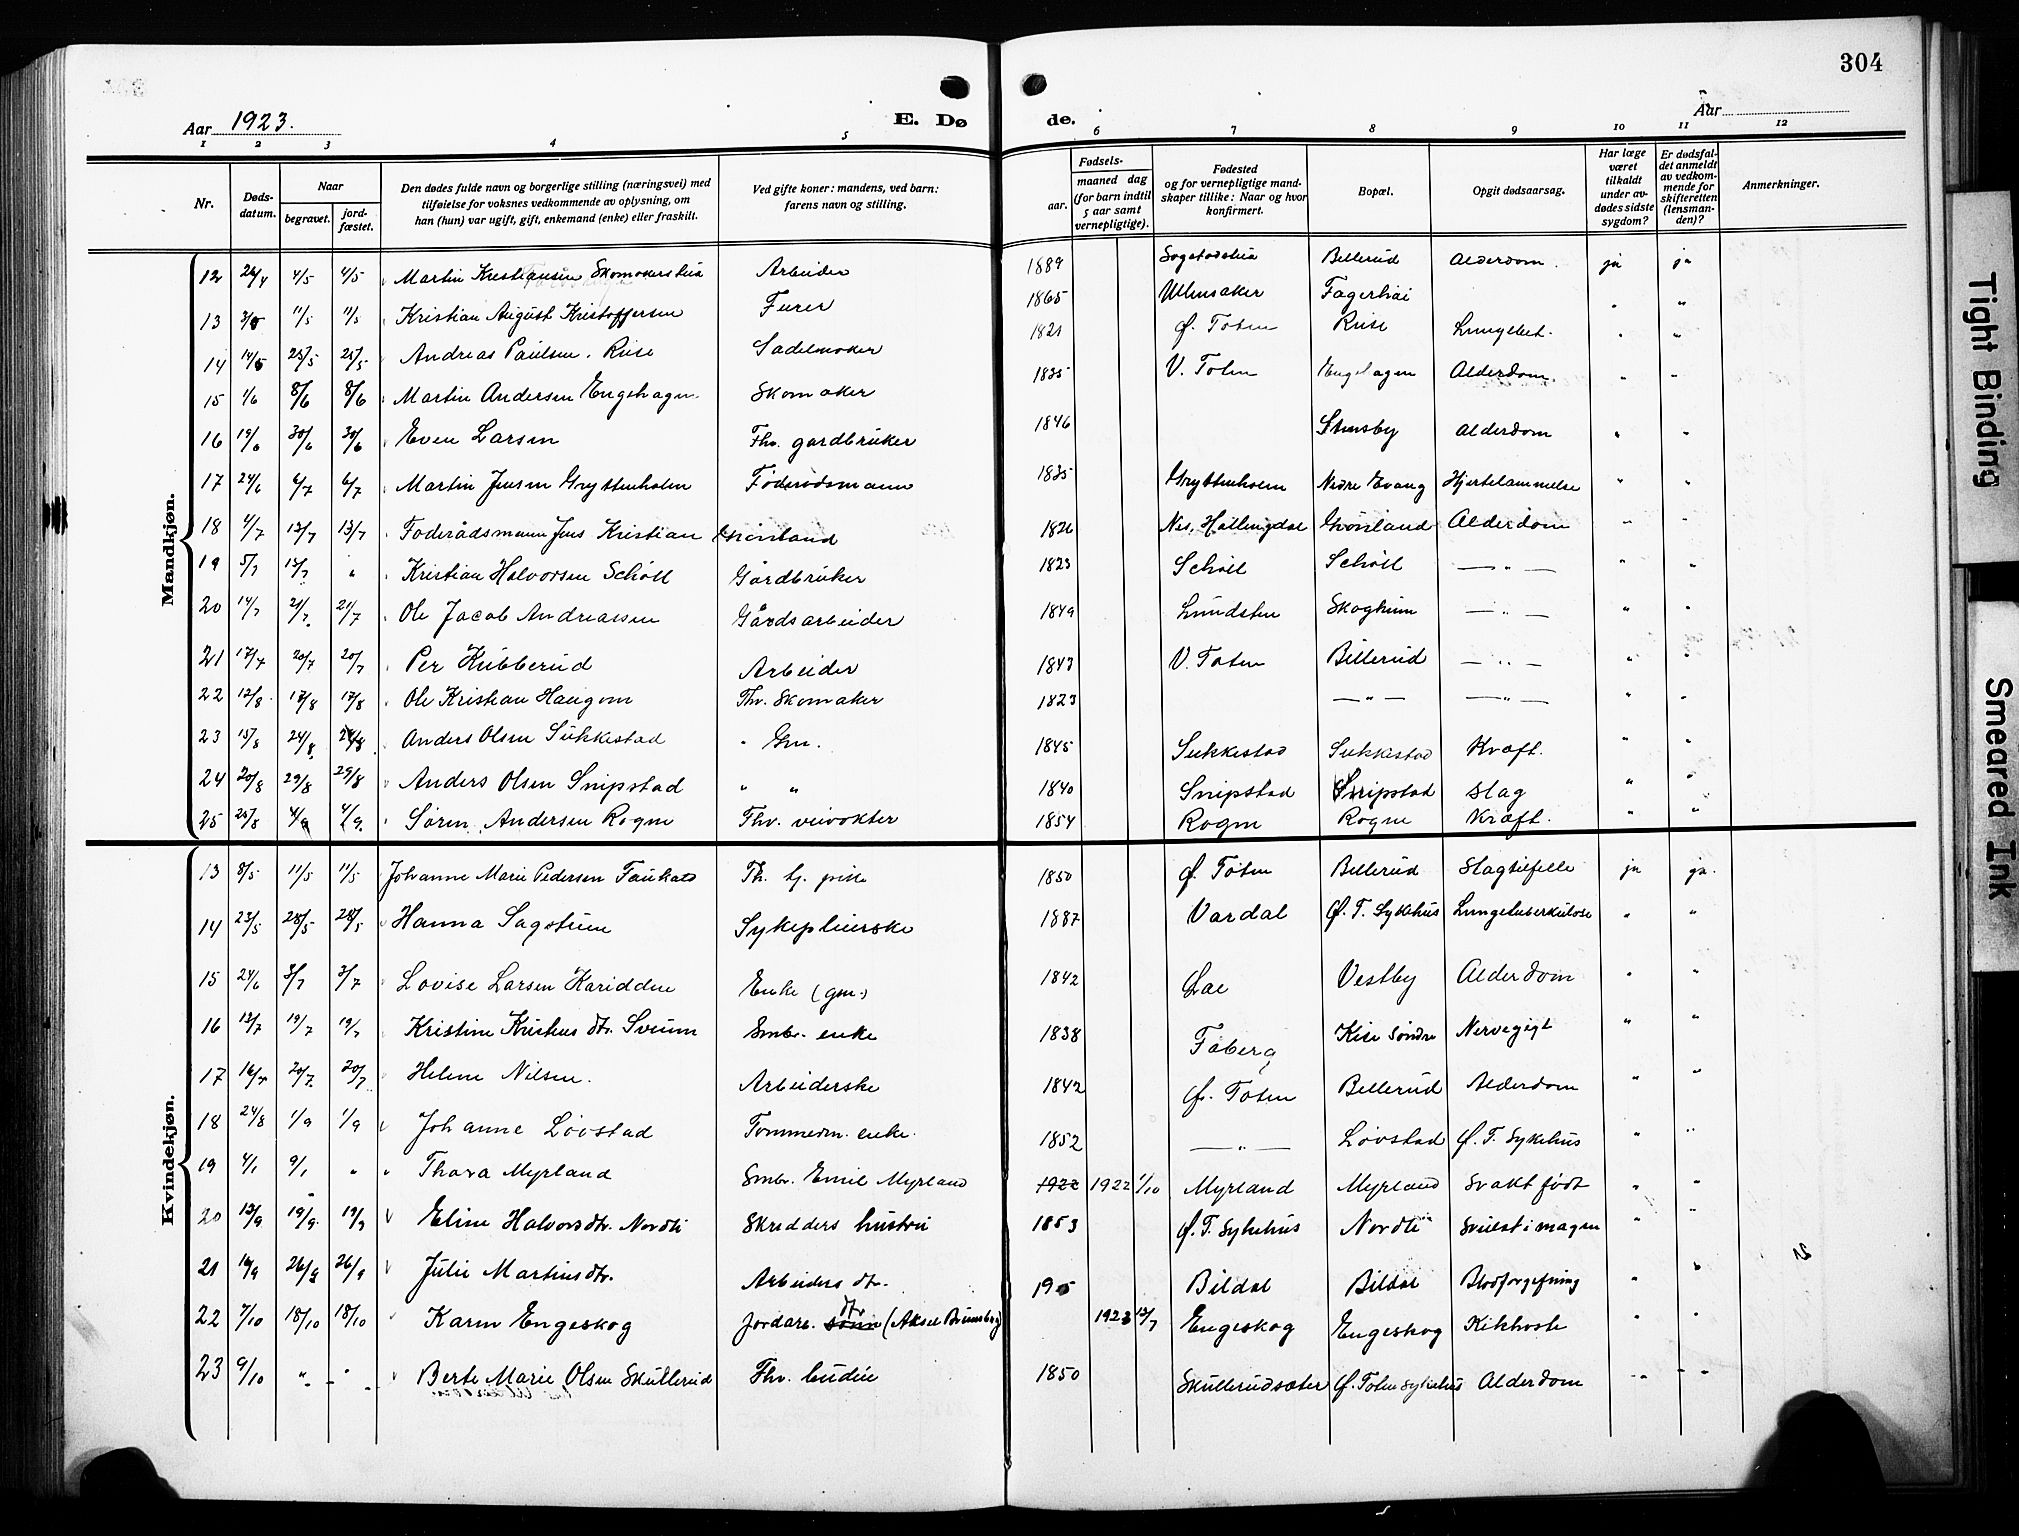 304
Aar 1923.
E. Dø
de.
Aar
1 2 3 4 5 6 7 8 9 10 11 12
Nr.
Døds-
datum.
Naar
begravet.
jord-
fæstet.
Den dødes fulde navn og borgerlige stilling (næringsvei) med
tilføielse for voksnes vedkommende av oplysning, om
han (hun) var ugift, gift, enkemand (enke) eller fraskilt.
Ved gifte koner: mandens, ved barn:
farens navn og stilling.
Fødsels-
aar.
maaned dag
(for barn indtil
5 aar samt
vernepligtige).
Fødested
og for vernepligtige mand-
skaper tillike: Naar og hvor
konfirmert.
Bopæl.
Opgit dødsaarsag.
Har læge
været
tilkaldt
under av-
dødes sidste
sygdom?
Er dødsfal-
det anmeldt
av vedkom-
mende for
skifteretten
(lensman-
den)?
Anmerkninger.
Mandkjøn.
12 26/4 4/5 4/5 Martin Kristiansen Arbeider 1889 Billerud Alderdom. ja ja
13 11/5 11/5 Kristian August Kristoffersen Furer 1865 Ullensaker " "
14 14/5 25/5 25/5 Andreas Paulsen. Riise Sadelmaker 1821 Ø. Toten Riise Lungebet. " "
15 1/6 8/6 8/6 Martin Andersen Engehagen Skomaker 1835 V. Toten Engehagen Alderdom. " "
16 19/6 30/6 30/6 Even Larsen Fhv. gardbruker 1846 Stensby Alderdom " "
17 24/6 6/7 6/7 Martin Jensen Gryttenholm Føderådsmann 1835 Gryttenholm Nedre Evang Hjertelammelse " "
18 4/7 13/7 13/7 Foderådsmann Jens Kristian Grönland 1826 Nes, Hallingdal Grönland Alderdom " "
19 5/7 13/7 " Kristian Halvorsen Schöll Gårdbruker 1823 Schöll Schöll — " — " "
20 14/7 21/7 21/7 Ole Jacob Andreassen Gårdsarbeider 1849 Lundsten — " — " "
21 17/7 20/7 20/7 Per Kubberud Arbeider 1843 V. Toten Billerud — " — " "
22 12/8 17/8 17/8 Ole Kristian Haugom Fhv. Skomaker 1823 — " — — " — " "
23 15/8 24/8 24/8 Anders Olsen Sukkestad " Gm. 1845 Sukkestad Sukkestad Kræft. " "
24 20/8 29/8 29/8 Anders Olsen Snipstad " " 1840 Snipstad Snipstad Slag " "
25 25/8 4/9 4/9 Sören Andersen Rogne Fhv. veivokter 1854 Rogne Rogne Kræft. " "
Kvindekjøn.
13 8/5 11/5 11/5 Johanne Marie Pedersen 1850 Ø. Toten Billerud Slagtilfelle ja ja.
14 23/5 28/5 28/5 Hanna Sagstuen Sykepleierske 1887 Vardal Ø. T. Sykehus Lungetuberkulose " "
15 24/6 3/7 3/7 Lovise Larsen Karidden Enke (gm.) 1842 Vestby Alderdom " "
16 13/7 19/7 19/7 Kristine dtr. Sveum Smbr. enke 1838 Fåberg Kise Söndre Nervegigt " "
17 16/7 20/7 20/7 Helene Nilsen. Arbeiderske 1842 Ø. Toten Billerud Alderdom " "
18 24/8 1/9 1/9 Johanne Lövstad Tömmerm. enke. 1852 — " — Lövstad Ø. T. Sykehus " "
19 4/1 9/1 " " Thora Myrland Smbr. Emil Myrland 1922 1922 1/10 Myrland Myrland Svakt födt " "
20 13/9 19/9 19/9 Eline Halvorsdtr. Nordli Skredders hustru 1853 Ø. T. Sykehus Nordli Svulst i magen " "
21 19/9 26/9 26/9 Julie Martinsdtr. Arbeiders dtr. Bildal Bildal Blodforgiftning " "
22 7/10 18/10 18/10 Karen Engeskog Jordarb. sönn dtr (Aksel 1923 13/7 Engeskog Engeskog Kikhoste " "
23 9/10 " " Berte Marie Olsen Skullerud Fhv. budeie 1850 Skullerudsæter Ø. Toten sykehus Alderdom " "
Tight Binding
Smeared Ink